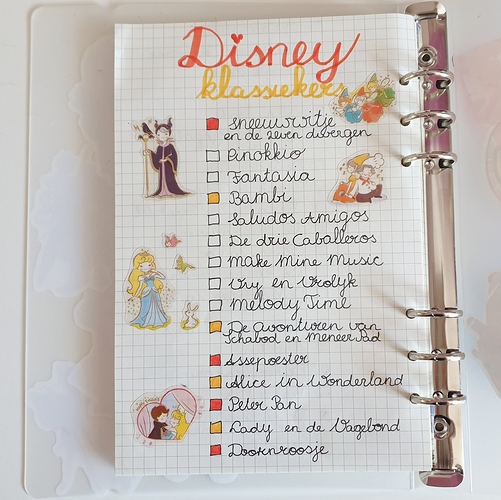 Disney
klassiekers
Sneeuwwitje
en de zeven dwergen
Pinokkio
Fantasia
Bambi
Saludos Amigos
De drie Caballeros
Make Mine Music
Vry en Vrolyk
Melody Time
De Avonturen van
Ichabod en Meneer Pad
Assepoester
Alice in Wonderland
Peter Pan
Lady en de Vagebond
Doornroosje